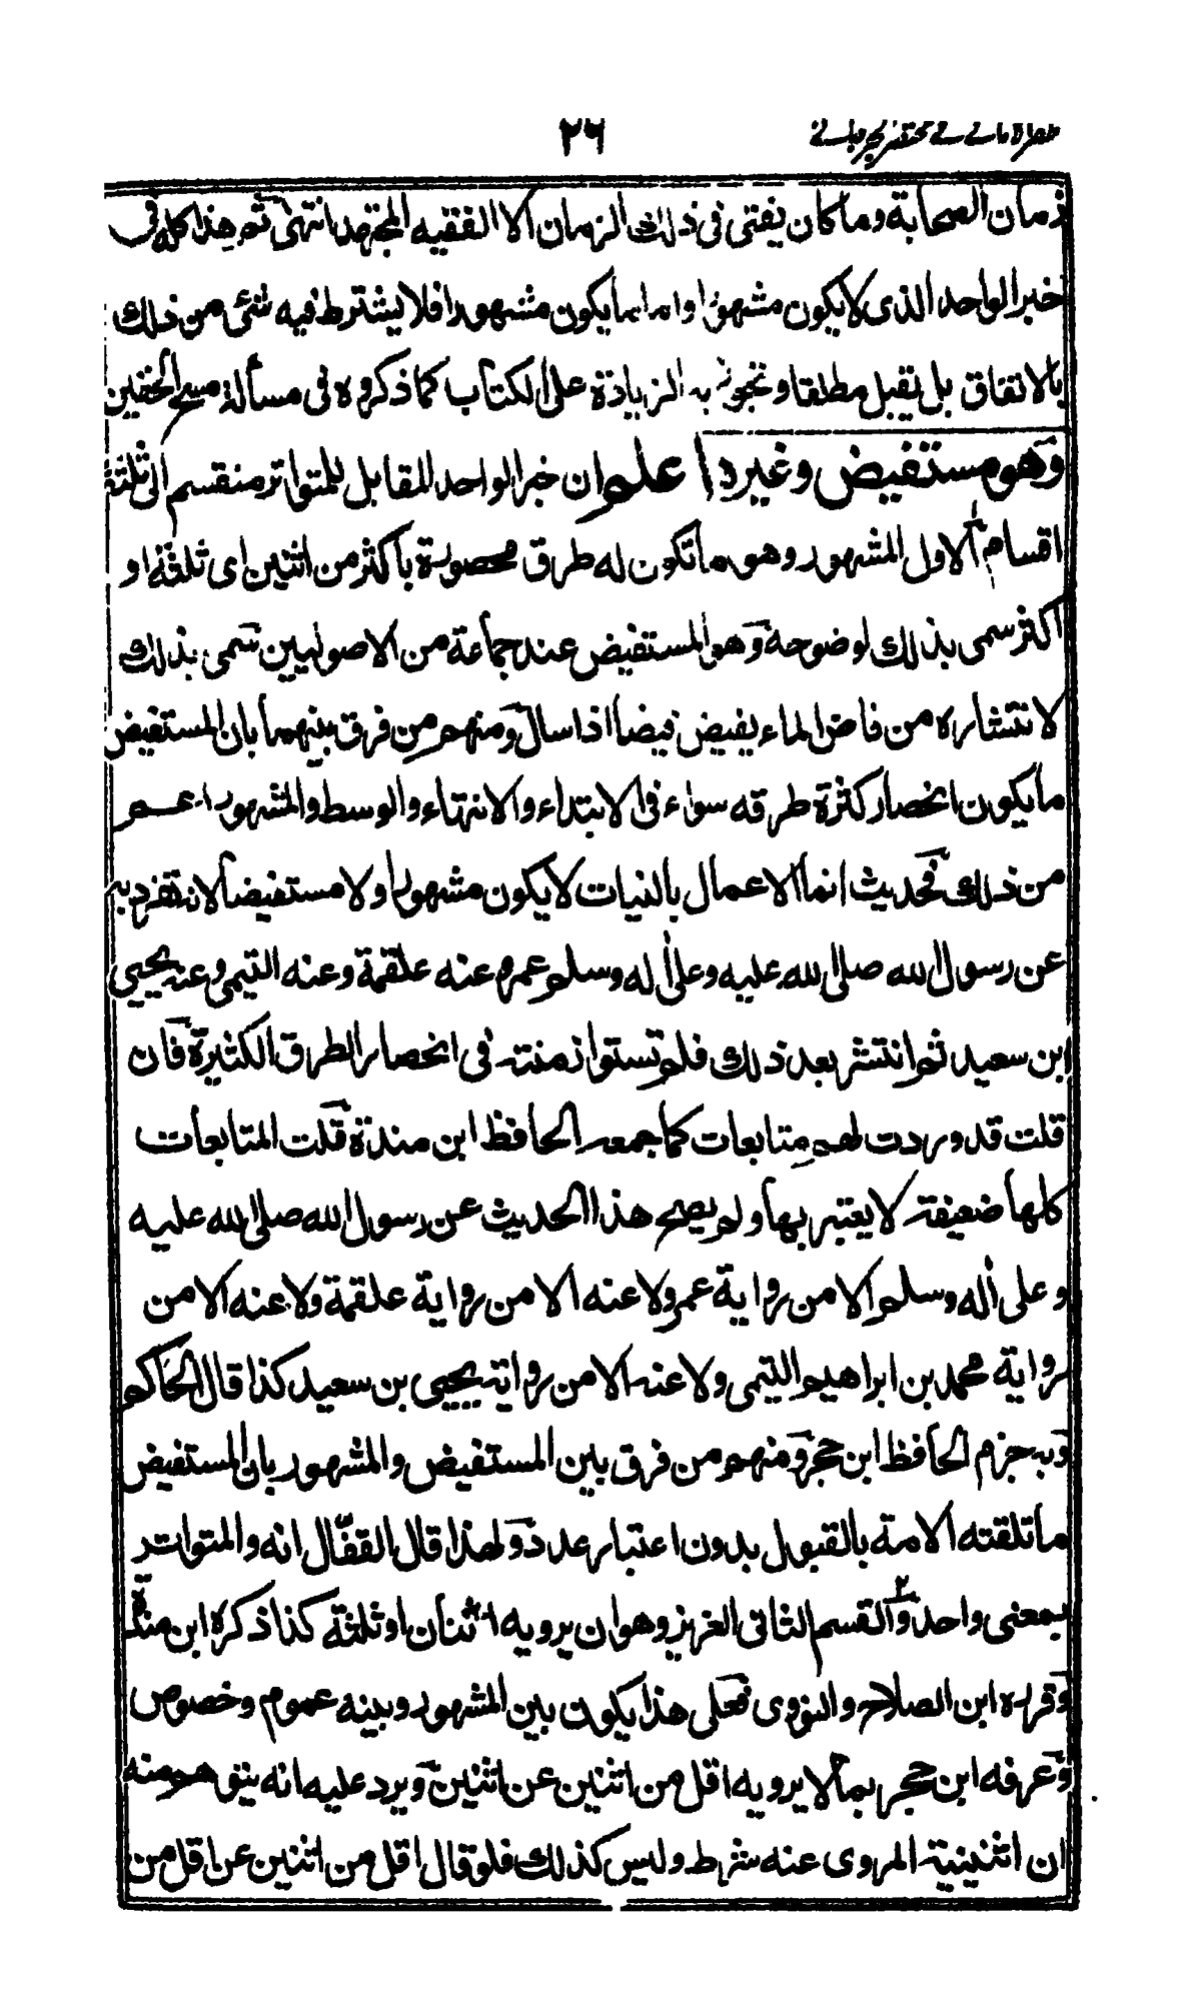 ظفر الاماني في مختصر الجرجاني
٢٦
زمان الصحابة وما كان يفتى فى ذلك الزمان الا الفقيه المجتهد انتهى ثم هذا كله فى
خبر الواحد الذى لا يكون مشهورا واما ما يكون مشهورا فلا يشترط فيه شئ من ذلك
بالاتفاق بل يقبل مطلقا وتجوز به الزيادة على الكتاب كما ذكروه فى مسألة مسح الخفين
وهو مستفيض وغيره اعلم ان خبر الواحد المقابل للمتواتر منقسم الى ثلثة
اقسام الاول المشهور وهو ما تكون له طرق محصورة باكثر من اثنين اى ثلثة او
اكثر سمى بذلك لوضوحه وهو المستفيض عند جماعة من الاصوليين سمى بذلك
لانتشاره من فاض الماء يفيض فيضا اذا سال ومنهم من فرق بينهما بان المستفيض
ما يكون انحصار كثرة طرقه سواء فى الابتداء والانتهاء والوسط والمشهور اعم
من ذلك فحديث انما الاعمال بالنيات لا يكون مشهورا ولا مستفيضا لانه تفرد به
عن رسول الله صلى الله عليه وعلى اله وسلم عمر وعنه علقمة وعنه التيمى وعنه يحيى
ابن سعيد ثم انتشر بعد ذلك فلم تستو ازمنته فى انحصار الطرق الكثيرة فان
قلت قد وردت لهم متابعات كما جمعه الحافظ ابن مندة قلت المتابعات
كلها ضعيفة لا يعتبر بها ولم يصح هذا الحديث عن رسول الله صلى الله عليه
وعلى اله وسلم الا من رواية عمر ولا عنه الا من رواية علقمة ولا عنه الا من
رواية محمد بن ابراهيم التيمى ولا عنه الا من رواية يحيى بن سعيد كذا قال الحاكم
وبه جزم الحافظ ابن حجر ومنهم من فرق بين المستفيض والمشهور بان المستفيض
ما تلقته الامة بالقبول بدون اعتبار عدد ولهذا قال القفّال انه والمتواتر
بمعنى واحد والقسم الثانى العزيز وهو ان يرويه اثنان او ثلثة كذا ذكره ابن مندة
وقرره ابن الصلاح والنووى فعلى هذا يكون بين المشهور وبينه عموم وخصوص
وعرفه ابن حجر بما لا يرويه اقل من اثنين عن اثنين ويرد عليه انه يتوهم منه
ان اثنينية المروى عنه شرط وليس كذلك فلو قال اقل من اثنين عن اقل من